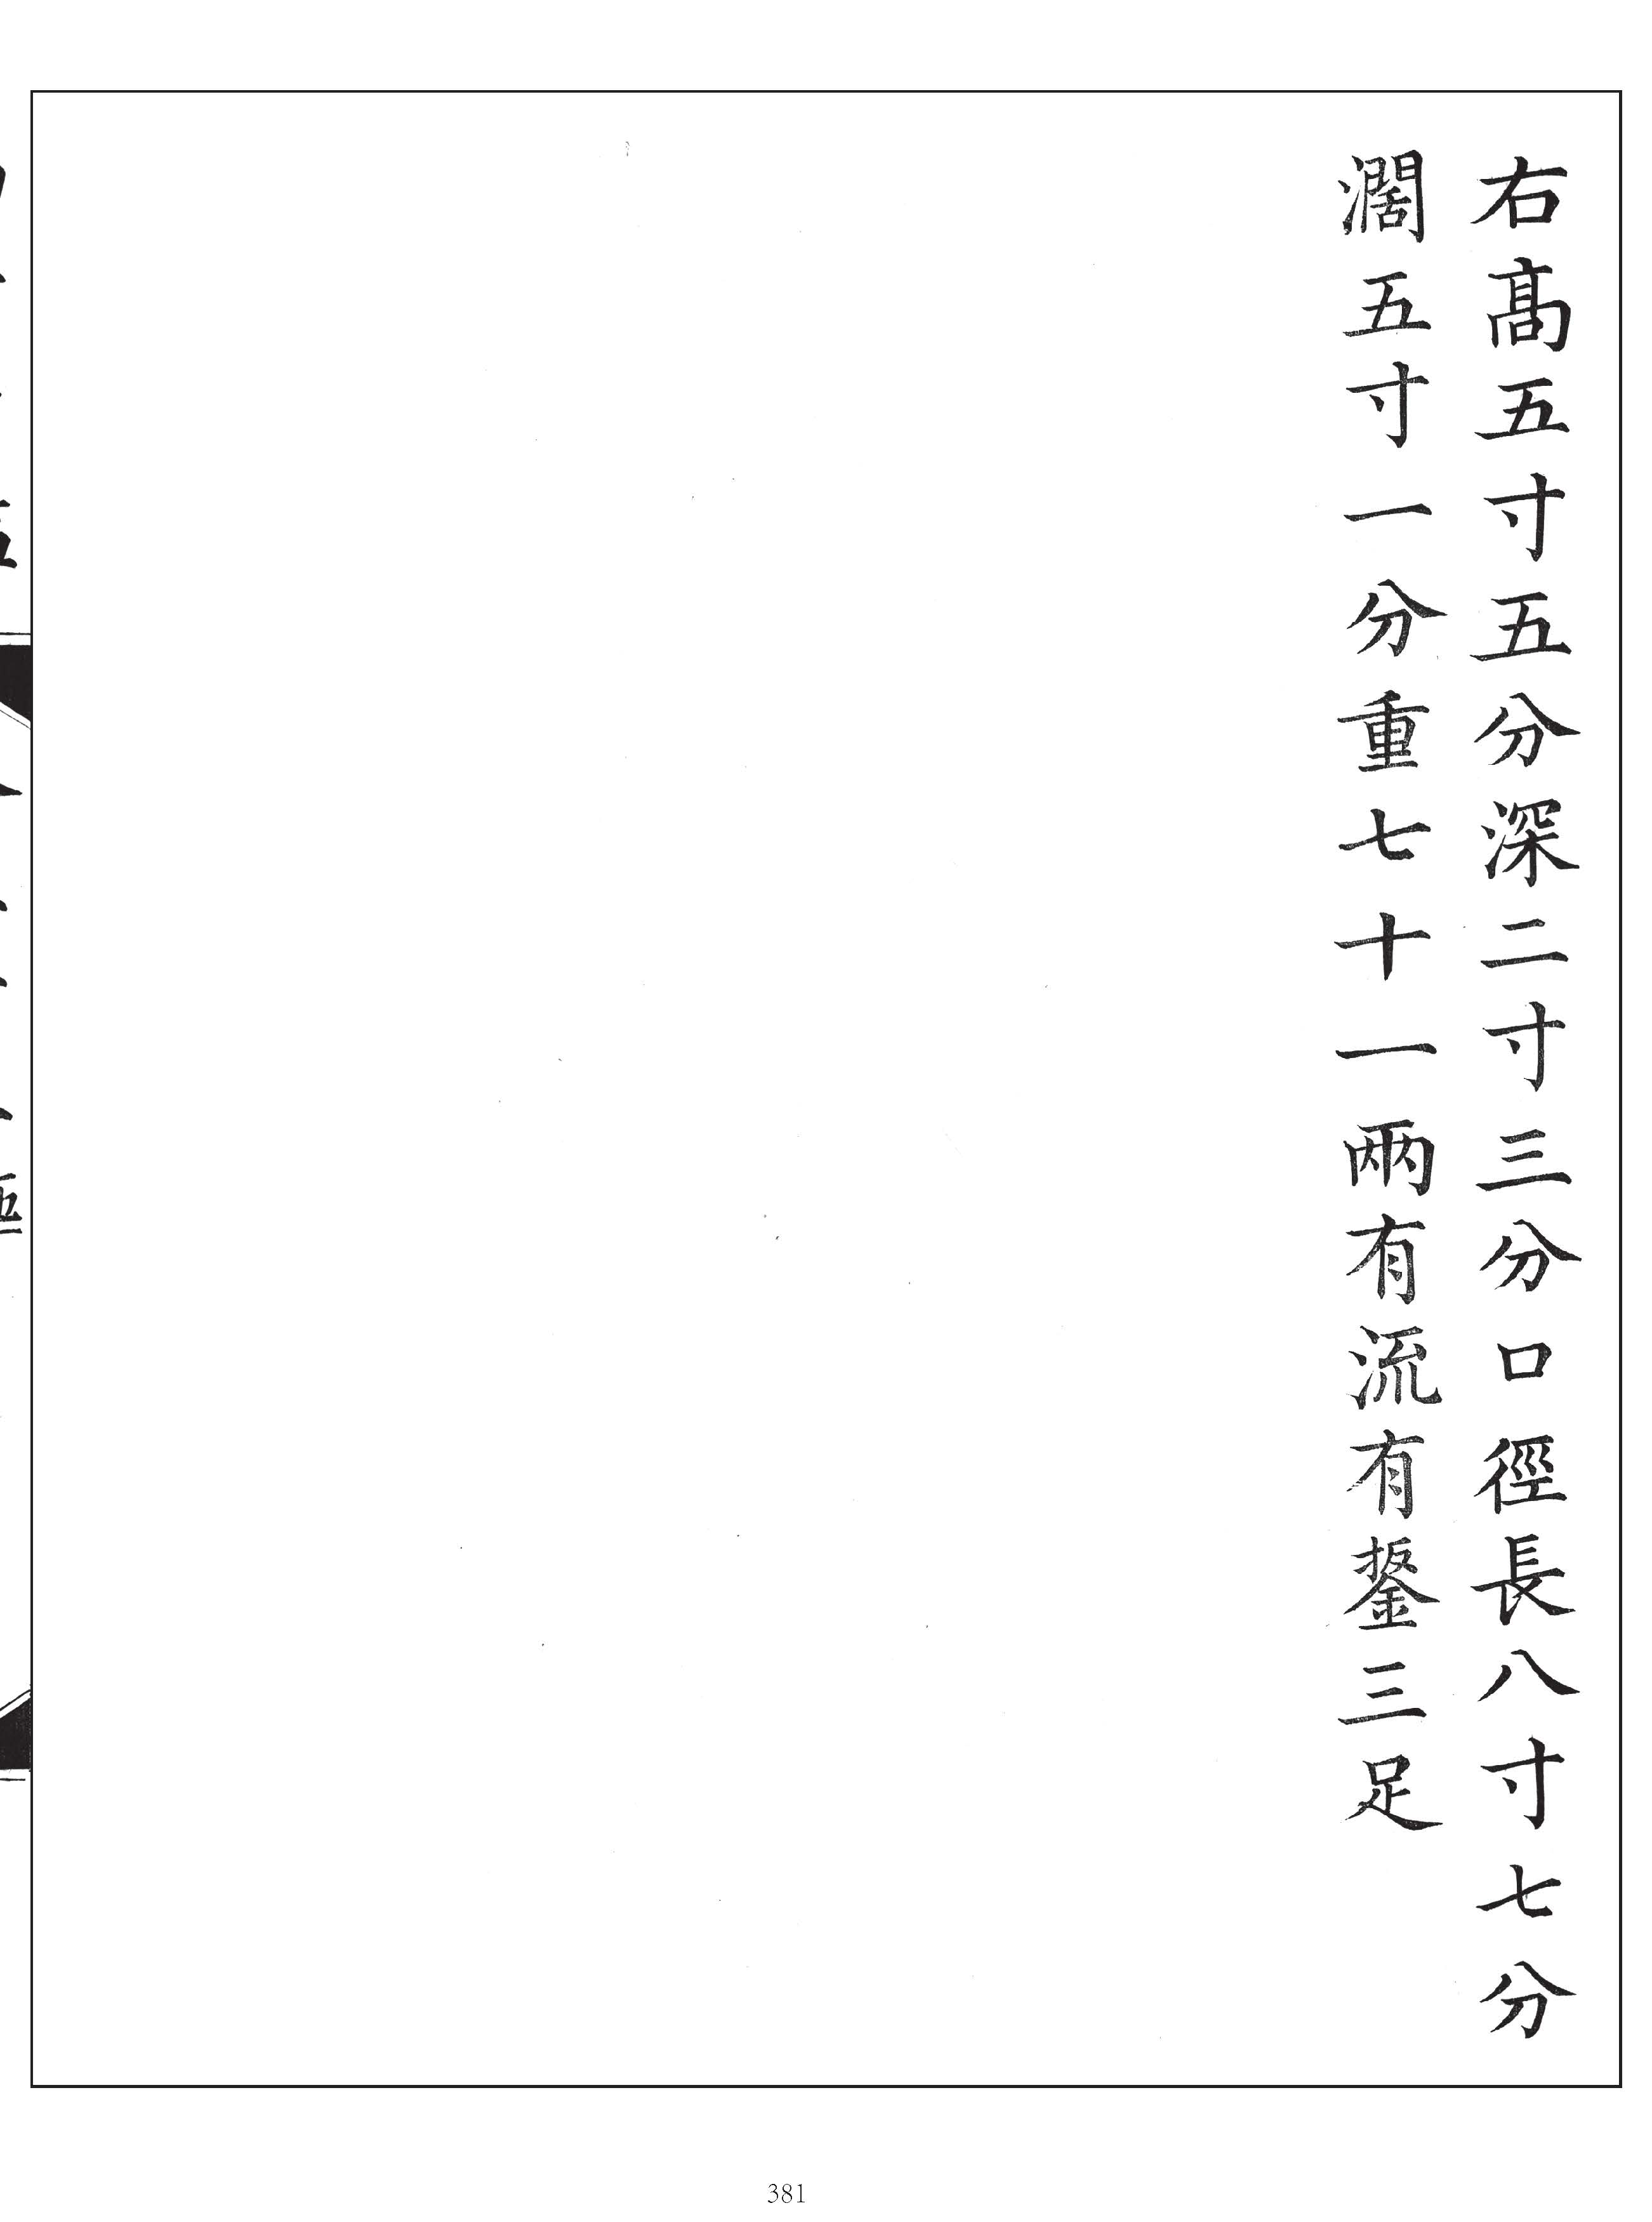 右髙五寸五分深二寸三分口徑長八寸七分
濶五寸一分重七十一兩有流有鋬三足
381